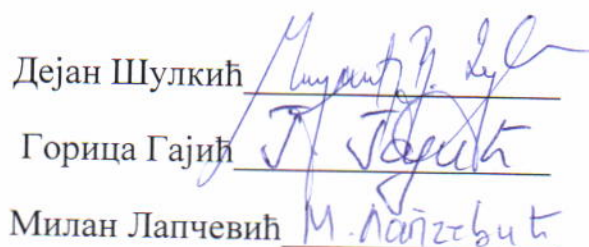 Дејан Шулкић
Горица Гајић Г. Гајић
Милан Лапчевић М. Лапчевић